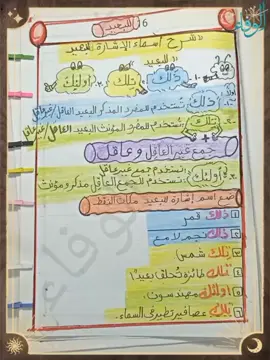 6 للبعيد
شرح أسماء الإشارة للبعيد
أولا: للبعيد
ذلك تلك أولئك
ذلك تستخدم للمفرد المذكر البعيد العاقل/غير عاقل
تلك تستخدم للمفرد المؤنث البعيد العاقل/غير عاقل
جمع غير العاقل و عاقل
تلك تستخدم جمع غير عاقل
أولئك تستخدم للجمع العاقل مذكر ومؤنث
ضع اسم إشارة للبعيد مكان النقط
١ ذلك قمر
٢ ذلك نجم لامع
٣ تلك شمس
٤ تلك طائرة تحلق بعيدا
٥ أولئك مهندسون
٦ تلك عصافير تطير في السماء.